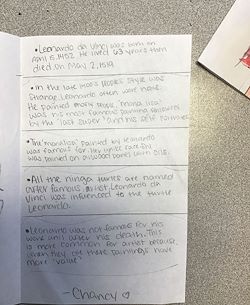 • Leonardo da Vinci was born on
April 15, 1452. He lived 63 years then
died on May 2, 1519.
• In the late 1400's peoples style was
strange. Leonardo often wore
He painted many people, "mona lisa"
was his most famous painting followed
by the "last super" and his self portrait.
The monalisa painted by leonardo
was famous for her
was painted on a wood panel with oils.
• All the ninga turtles are named
after famous artist. Leonardo da
Vinci was influenced to the turtle
Leonardo.
• Leonardo was not famous for his
work until when his death. This
is more common for artist because
when they die there paintings have
more "value"
- Chancy ♡